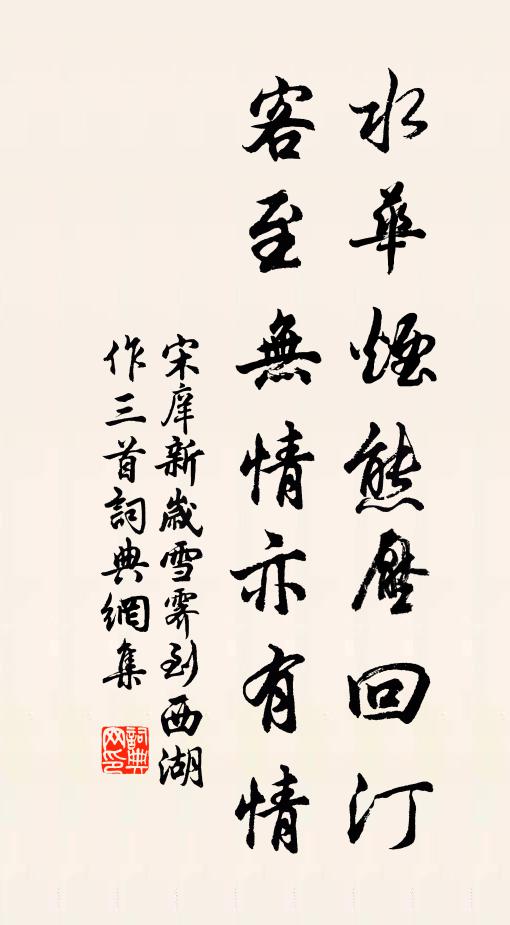 水華煙態壓回汀
客至無情亦有情
宋庠新歲雪霽到西湖
作三首詞典網集
詞典
网印